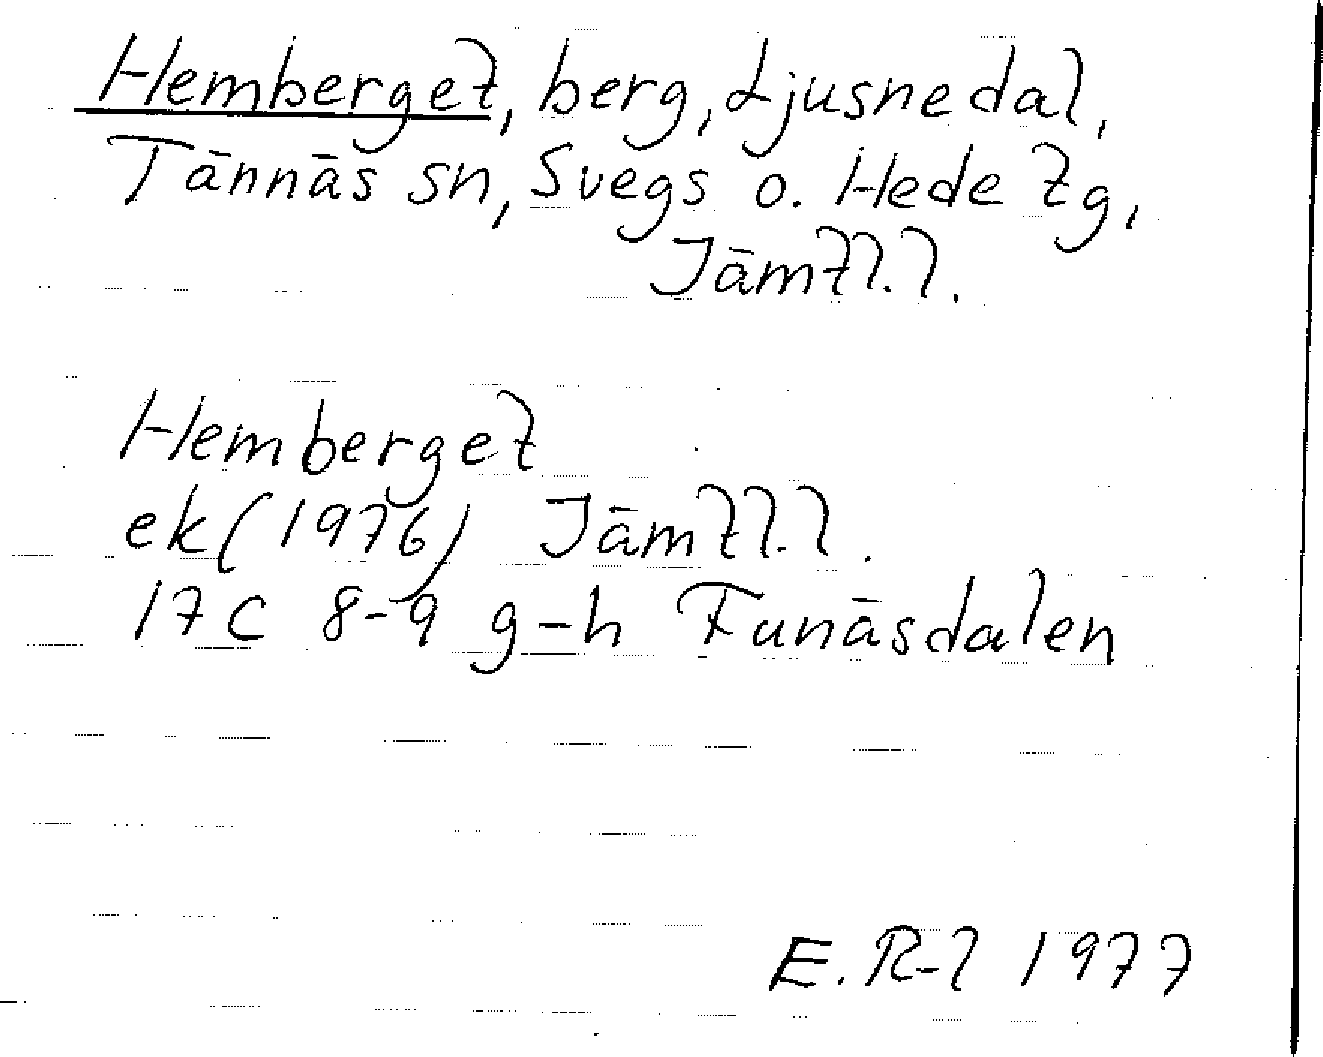 Hemberget, berg, Ljusnedal,
Tännäs sn, Svegs o. Hede tg,
Jämtl.l.
Hemberget
ek(1976) Jämtl.l.
17C 8-9 g-h Funäsdalen
E. R-l 1977